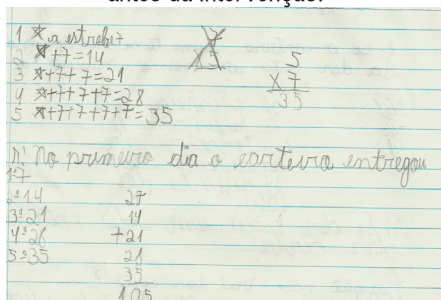 antes da intervenção.
1 ☆ a estrela 7
2 ☆+7=14
3 ☆+7+7=21
4 ☆+7+7+7=28
5 ☆+7+7+7+7=35
5
x7
35
R: No primeiro dia o carteiro entregou
1º7
2º14
3º21
4º28
5º35
27
14
+21
28
35
105